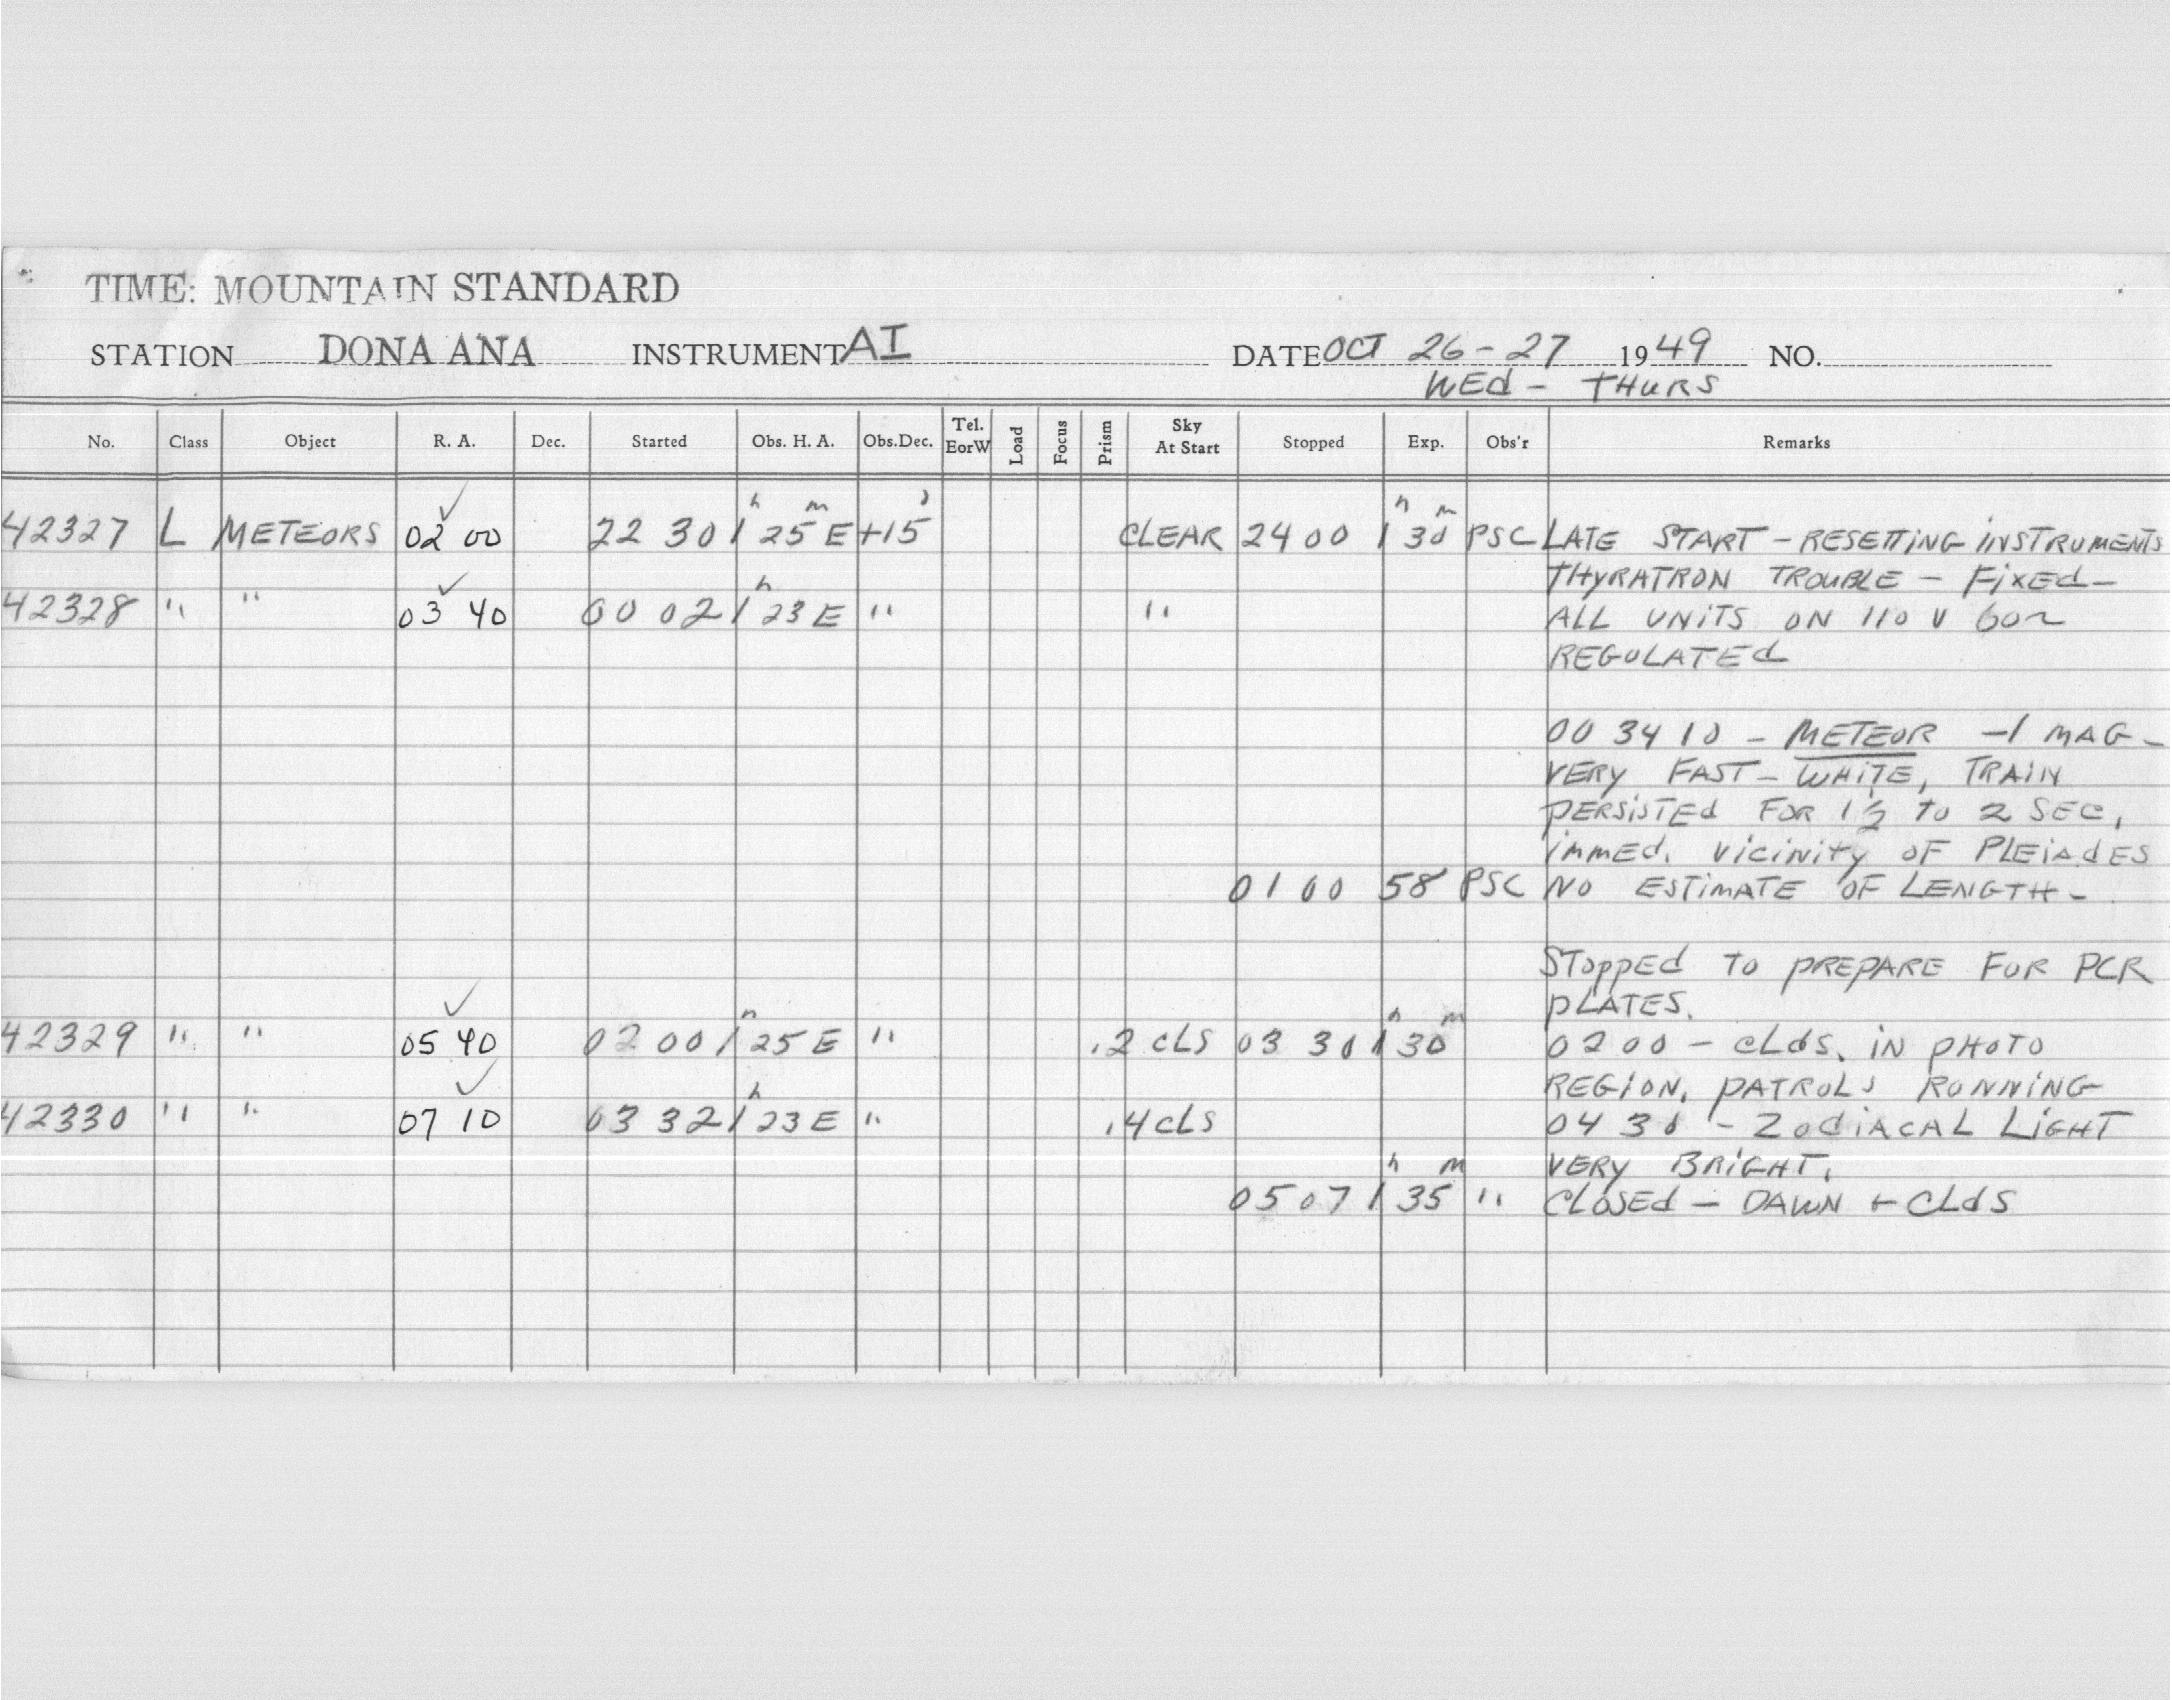 TIME: MOUNTAIN STANDARD
STATION DONA ANA INSTRUMENT AI DATE OCT 26-27 1949 NO.
WEd - THURS
No. Class Object R. A. Dec. Started Obs. H. A. Obs.Dec. Tel. EorW Load Focus Prism Sky At Start Stopped Exp. Obs'r Remarks
42327 L METEORS 02 00 22 30 1h 25m E +15° CLEAR 24 00 1h 30m PSC LATE START - RESETTING INSTRUMENTS
THYRATRON TROUBLE - FIXEd -
42328 " " 03 40 00 02 1h 23 E " " ALL UNITS ON 110 V 60~
REGULATEd
00 34 10 - METEOR -1 MAG -
VERY FAST - WHITE, TRAIN
PERSISTEd FOR 1½ TO 2 SEC,
immEd. VICINITY OF PLEIADES
01 00 58 PSC NO ESTIMATE OF LENGTH -
STOPPEd TO PREPARE FOR PCR
PLATES.
42329 " " 05 40 02 00 1h 25 E " .2 CLS 03 30 1h 30m 0200 - CLdS. IN PHOTO
REGION. PATROLS RUNNING
42330 " " 07 10 03 32 1h 23 E " .4 CLS 04 30 - ZOdIACAL LIGHT
VERY BRIGHT.
05 07 1h 35m " CLOSEd - DAWN + CLdS